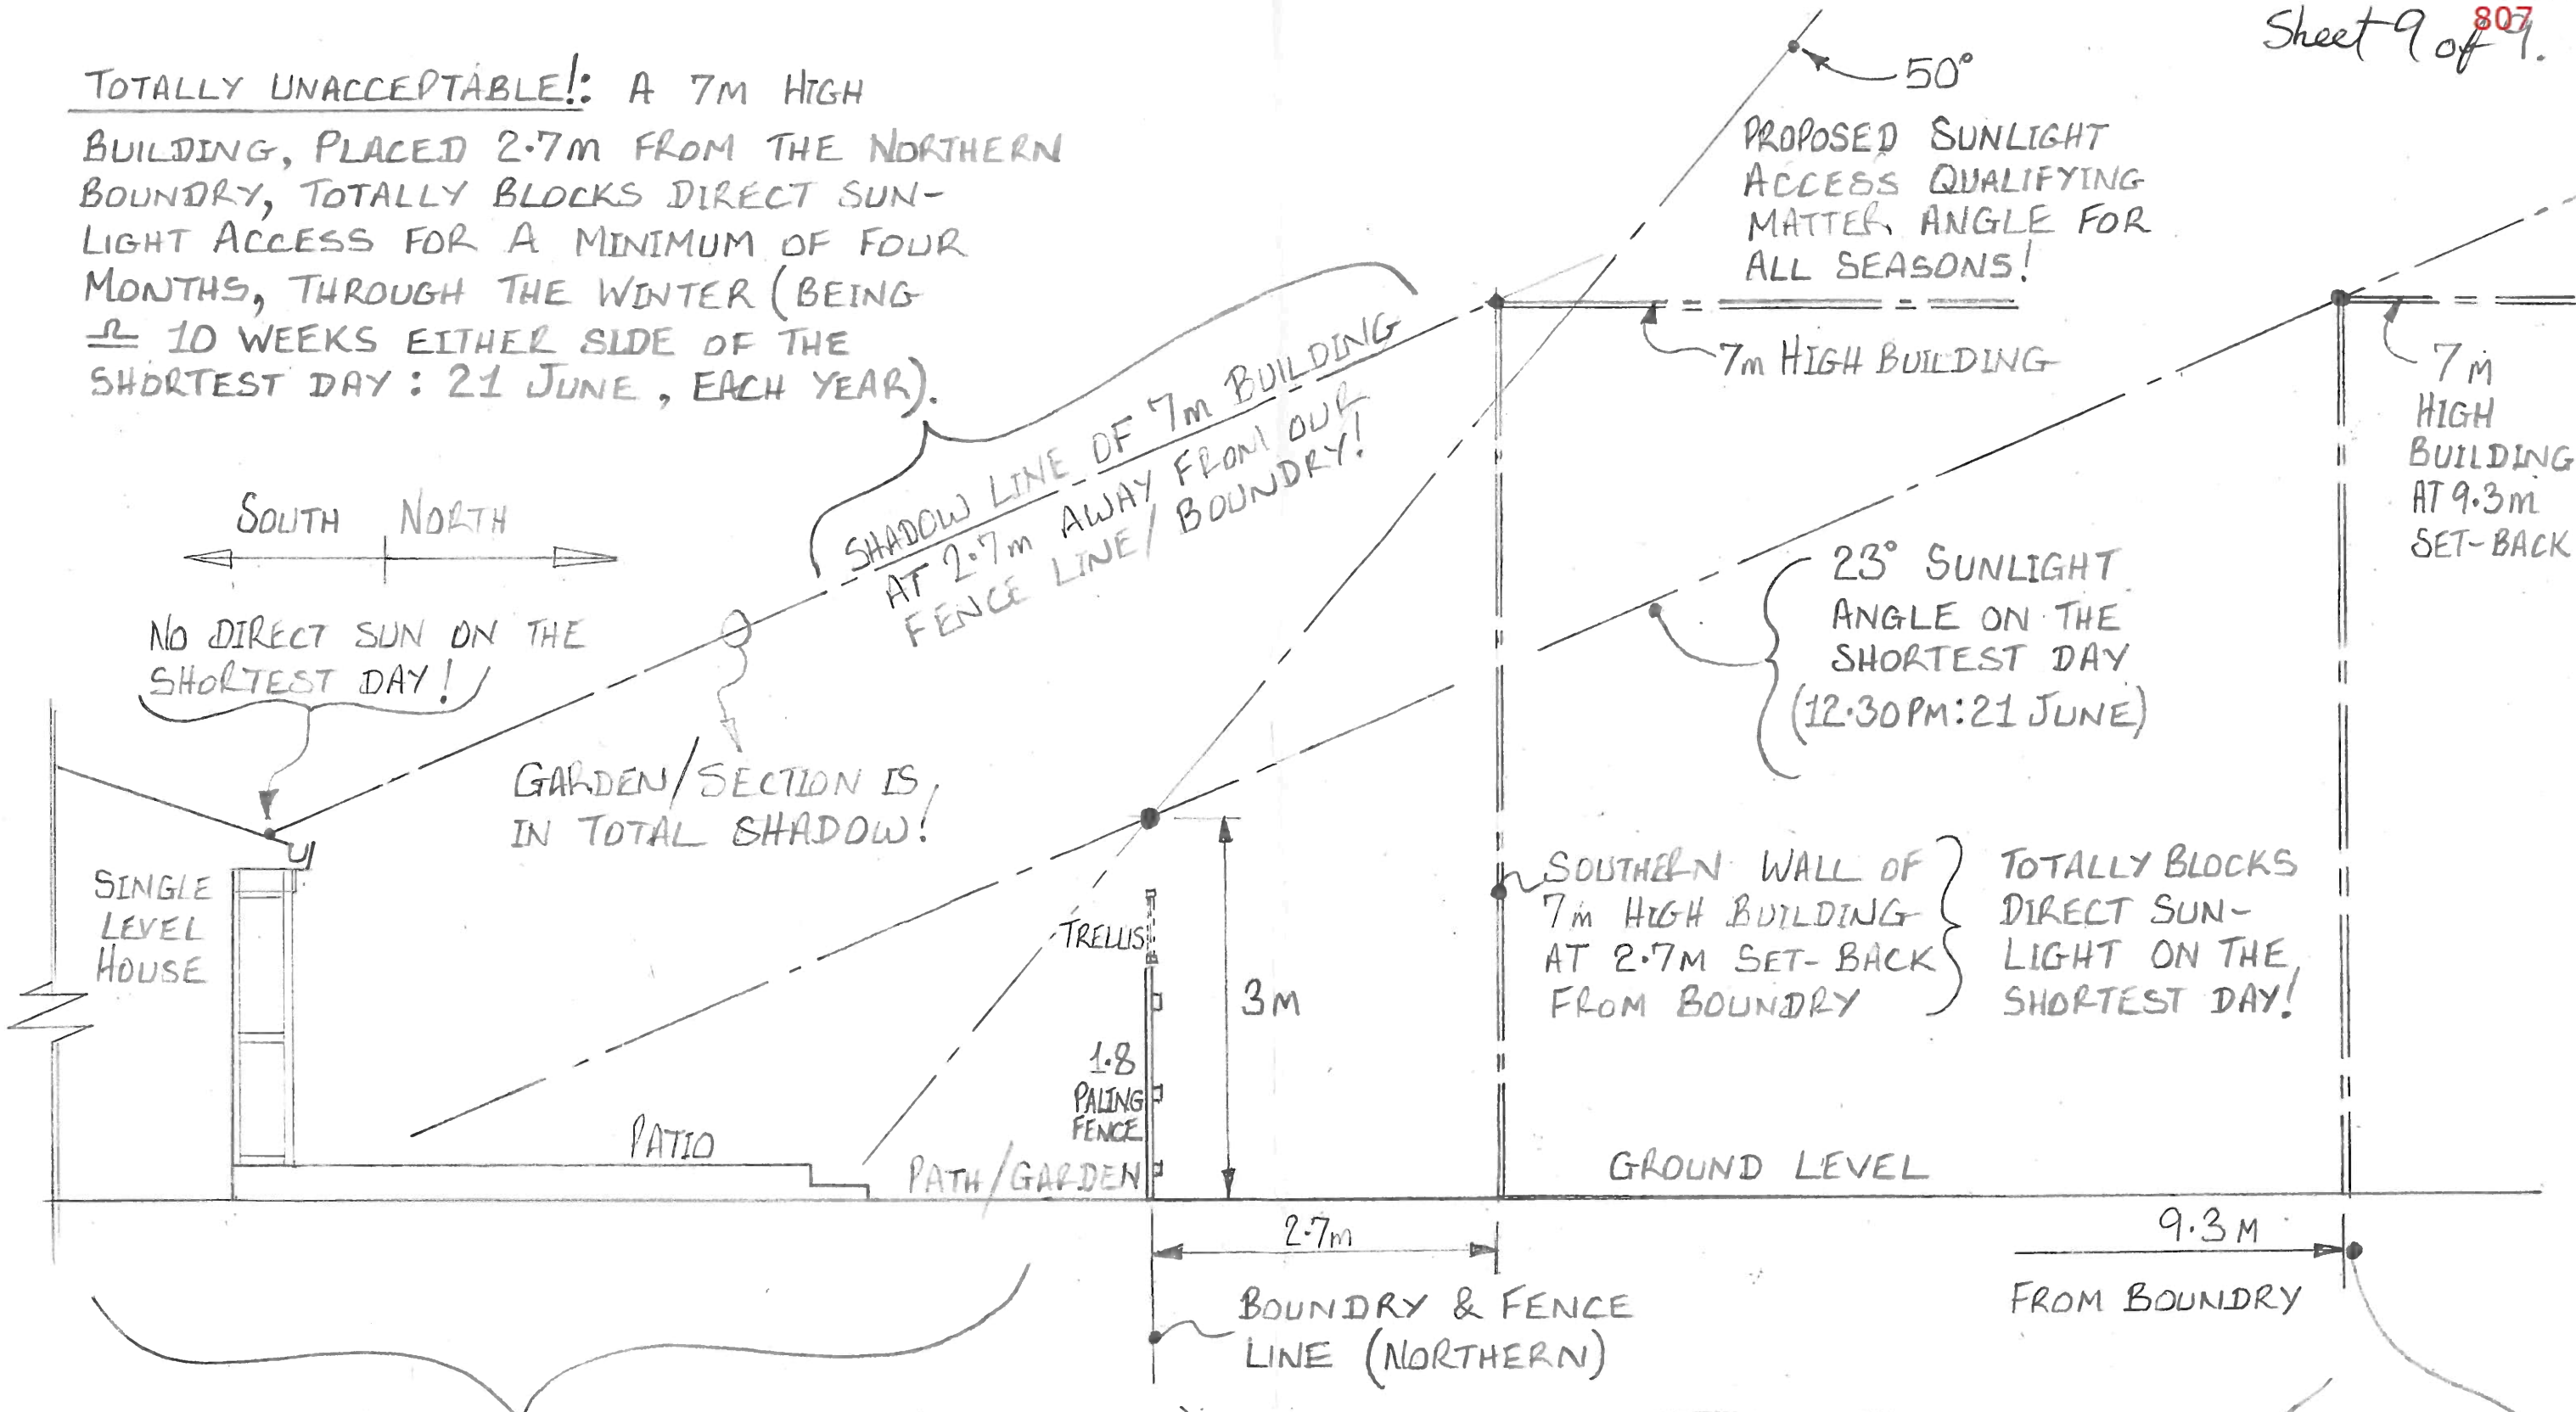 Sheet 9 of 9.
807
TOTALLY UNACCEPTABLE!: A 7M HIGH
BUILDING, PLACED 2.7m FROM THE NORTHERN
BOUNDRY, TOTALLY BLOCKS DIRECT SUN-
LIGHT ACCESS FOR A MINIMUM OF FOUR
MONTHS, THROUGH THE WINTER (BEING
≏ 10 WEEKS EITHER SIDE OF THE
SHORTEST DAY: 21 JUNE, EACH YEAR).
50°
PROPOSED SUNLIGHT
ACCESS QUALIFYING
MATTER ANGLE FOR
ALL SEASONS!
7m HIGH BUILDING
7m
HIGH
BUILDING
AT 9.3m
SET-BACK
SHADOW LINE OF 7m BUILDING
AT 2.7m AWAY FROM OUR
FENCE LINE/BOUNDRY!
SOUTH NORTH
NO DIRECT SUN ON THE
SHORTEST DAY!
23° SUNLIGHT
ANGLE ON THE
SHORTEST DAY
(12.30PM: 21 JUNE)
GARDEN/SECTION IS
IN TOTAL SHADOW!
SINGLE
LEVEL
HOUSE
TRELLIS
3M
SOUTHERN WALL OF
7m HIGH BUILDING
AT 2.7M SET-BACK
FROM BOUNDRY
TOTALLY BLOCKS
DIRECT SUN-
LIGHT ON THE
SHORTEST DAY!
1.8
PALING
FENCE
PATIO
PATH/GARDEN
GROUND LEVEL
2.7m
9.3M
FROM BOUNDRY
BOUNDRY & FENCE
LINE (NORTHERN)